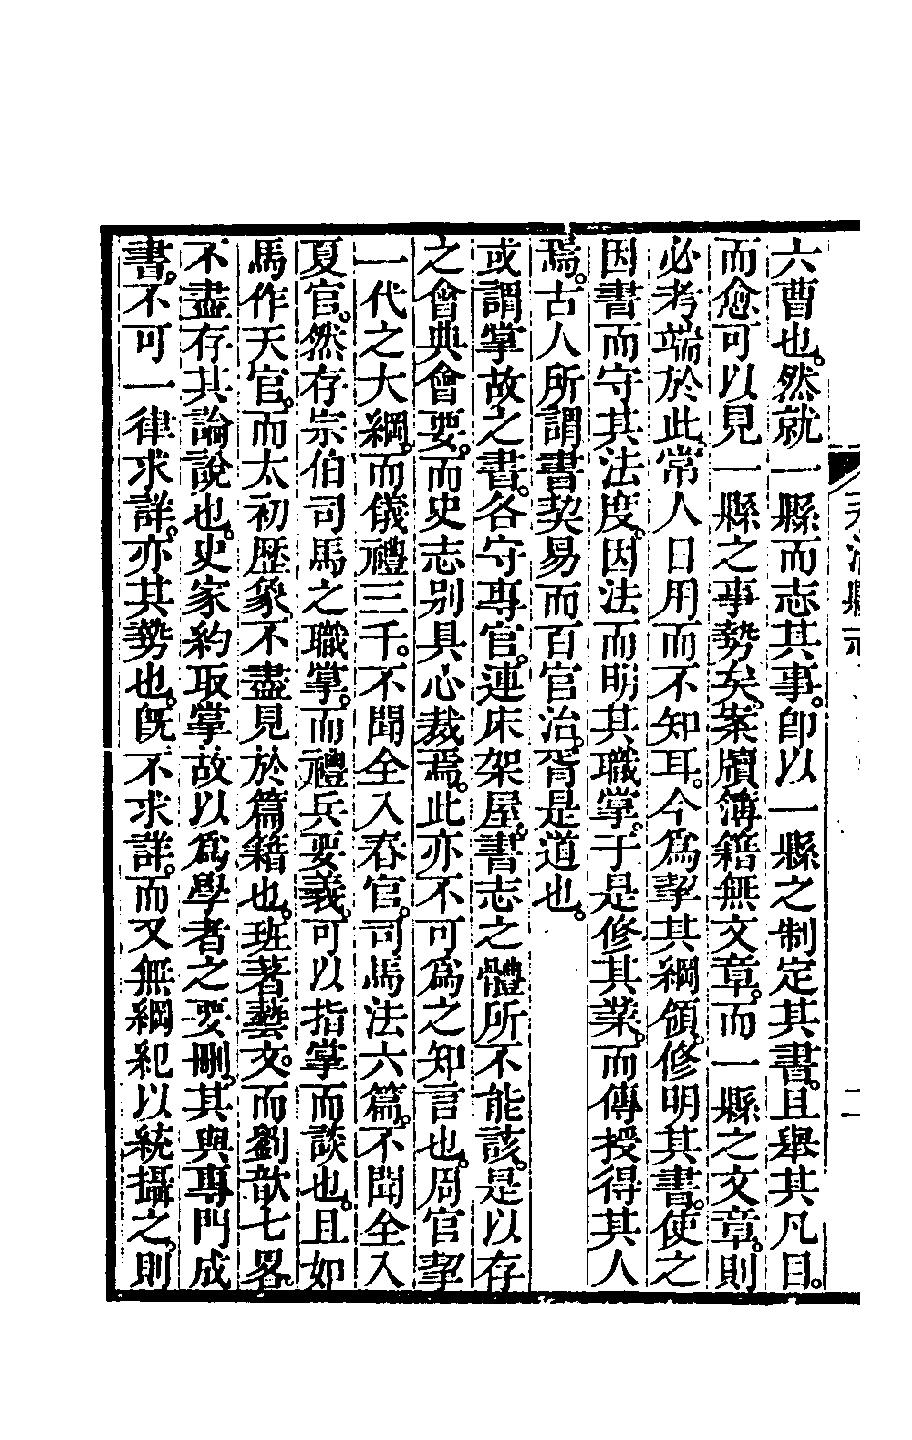 六曹也。然就一縣而志其事。即以一縣之制定其書。且舉其凡目。
而愈可以見一縣之事勢矣。案牘簿籍無文章。而一縣之文章。則
必考端於此。常人日用而不知耳。今為挈其綱領。修明其書。使之
因書而守其法度。因法而明其職掌。于是修其業。而傳授得其人
焉。古人所謂書契易而百官治。胥是道也。
或謂掌故之書。各守專官。連床架屋。書志之體所不能該。是以存
之會典會要。而史志別具心裁焉。此亦不可為之知言也。周官挈
一代之大綱。而儀禮三千。不聞全入春官。司馬法六篇。不聞全入
夏官。然存宗伯司馬之職掌。而禮兵要義。可以指掌而談也。且如
馬作天官。而太初歷象。不盡見於篇籍也。班著藝文。而劉歆七畧。
不盡存其論說也。史家約取掌故。以為學者之要刪。其與專門成
書。不可一律求詳。亦其勢也。既不求詳。而又無綱紀以統攝之。則
縣
二